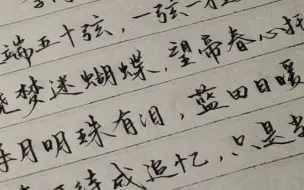 端五十弦，一弦一柱
梦迷蝴蝶，望帝春心托
月明珠有泪，蓝田日暖
待成追忆，只是当